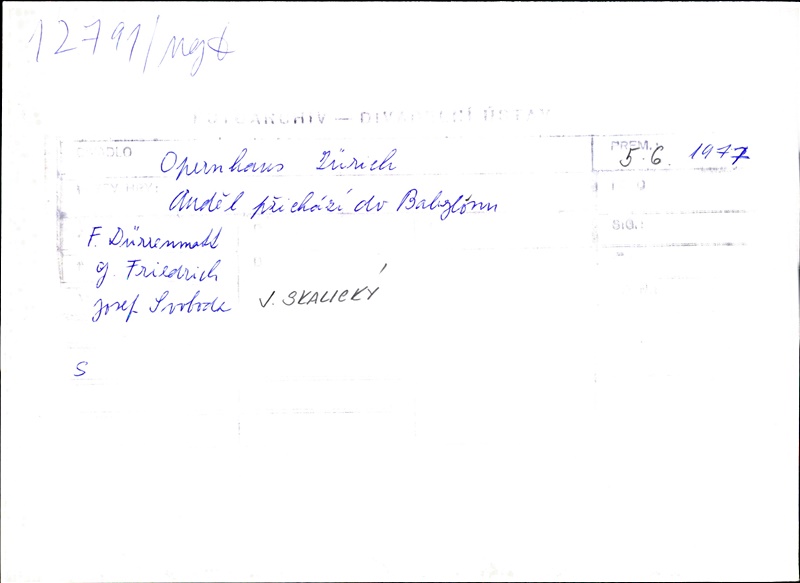 12791/neg
FOTOARCHIV — DIVADELNÍ ÚSTAV
Opernhaus Zürich PREM.: 5.6. 1977
Anděl přichází do Babylónu
SIG.:
F. Dürrenmatt
g. Friedrich
Josef Svoboda V. SKALICKÝ
S